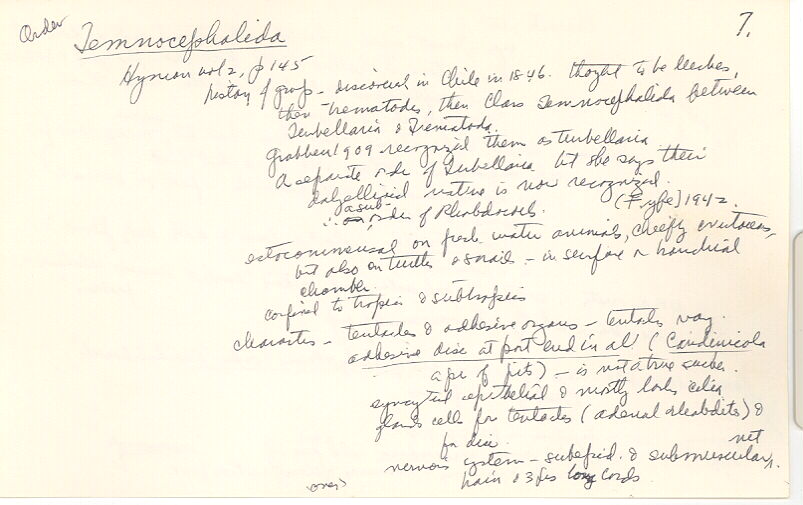 7.
Order Temnocephalida
Hyman vol 2, p 145
history of group - discovered in Chile in 1846. thought to be leeches,
then trematodes, then Class Temnocephalida between
Turbellaria & Trematoda.
Grabben 1909 recognized them as turbellaria
a separate order of Turbellaria but she says their
dalyellioid nature is now recognized.
(Fyfe) 1942.
∴ a sub-order of Rhabdocoels.
ectocommensal on fresh water animals, chiefly crustaceas,
but also on turtles & snails - in surface or branchial
chamber.
confined to tropics & subtropics
characters - tentacles & adhesive organs - tentacles vary.
adhesive disc at post end in all (Caridinicola
a pr of pits) - is not a true sucker.
syncytial epithelial & mostly lacks cilia
gland cells for tentacles (adenal rhabdites) &
for disc.
nervous system - subepid. & submuscular net
brain & 3 prs long cords.
over)